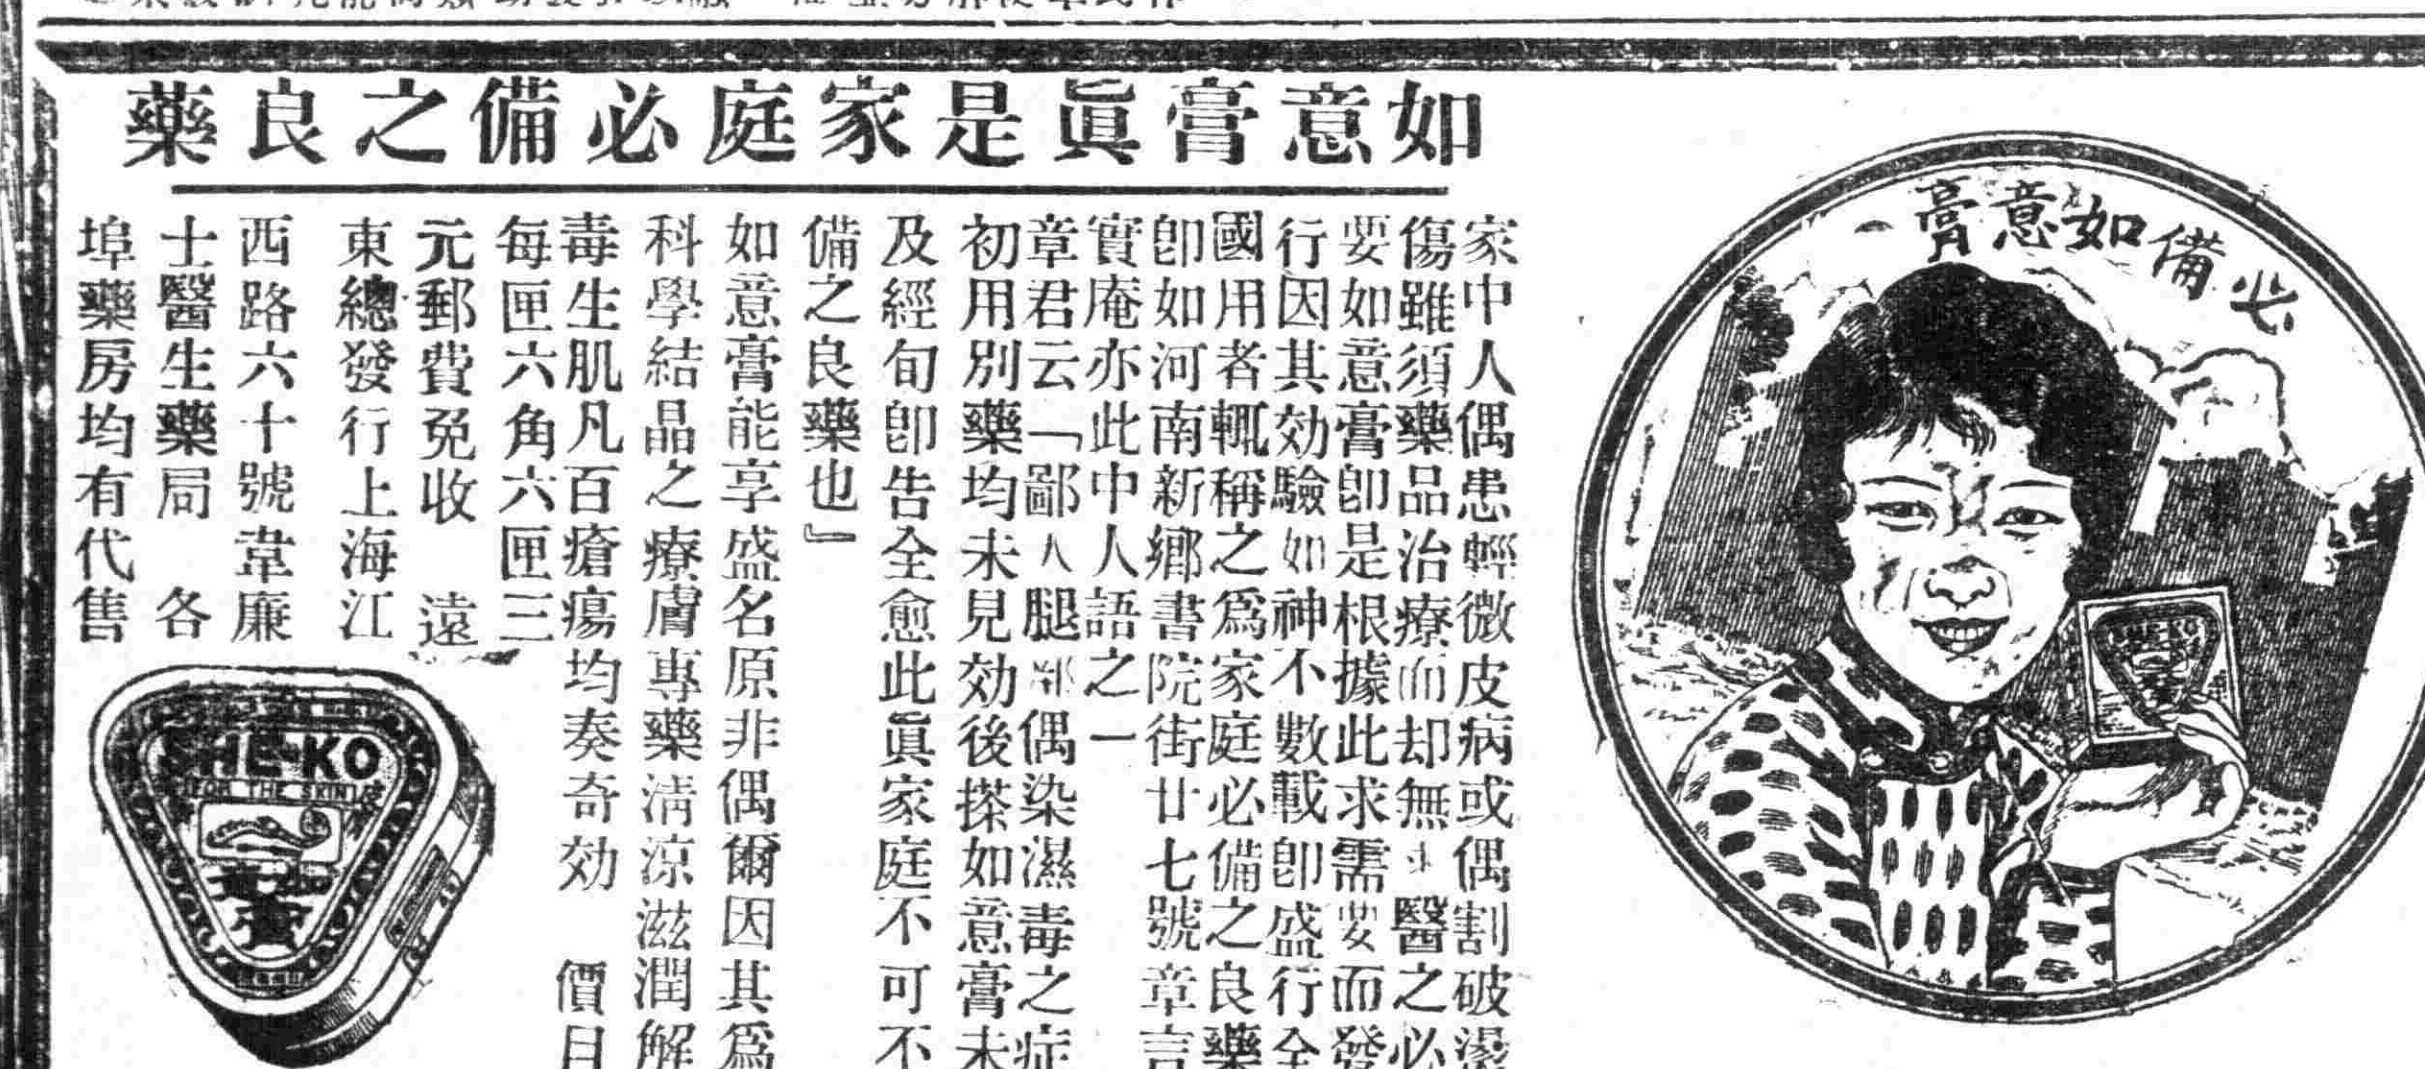 如意膏眞是家庭必備之良藥
必備如意膏
家中人偶患輕微皮病或偶割破燙
傷雖須藥品治療而却無求醫之必
要如意膏卽是根據此求需要而發
行因其効驗如神不數載卽盛行全
國用者輒稱之爲家庭必備之良藥
卽如河南新鄉書院街廿七號章言
實庵亦此中人語之一
章君云「鄙人腿部偶染濕毒之症
初用別藥均未見効後搽如意膏未
及經旬卽告全愈此眞家庭不可不
備之良藥也」
如意膏能享盛名原非偶爾因其爲
科學結晶之療膚專藥淸涼滋潤解
毒生肌凡百瘡瘍均奏奇効 價目
每匣六角六匣三
元郵費免收 遠
東總發行上海江
西路六十號韋廉
士醫生藥局 各
埠藥房均有代售
SHE-KO
FOR THE SKIN
如意
膏
SHE-KO